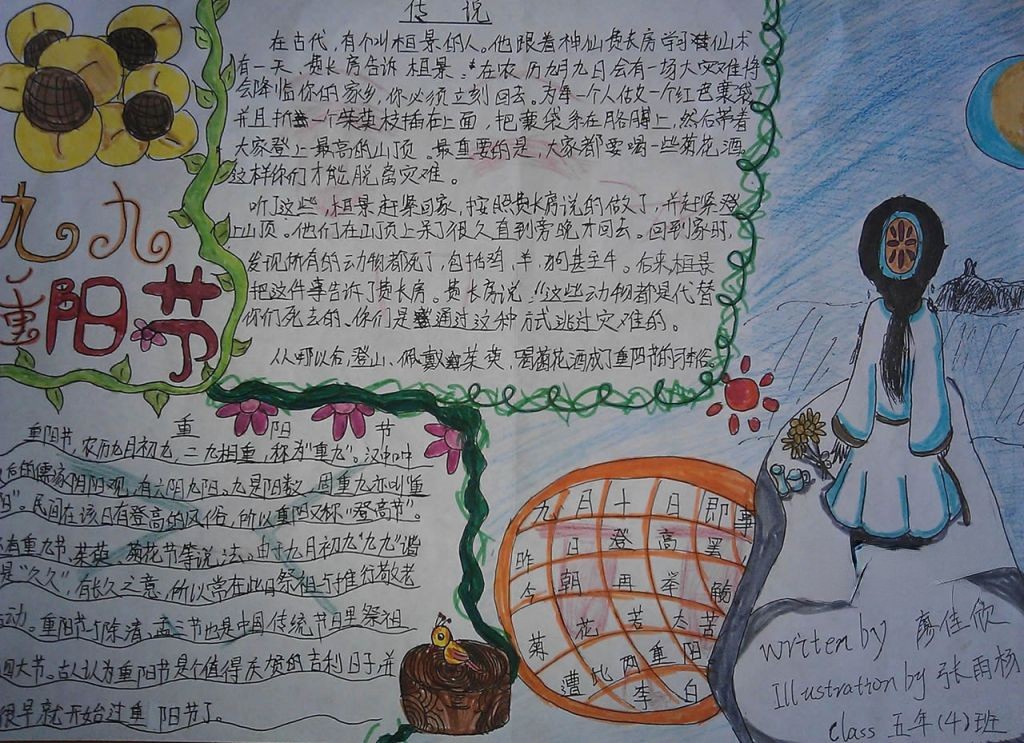 传 说
在古代,有个叫桓景的人。他跟着神仙费长房学习潜仙术
有一天,费长房告诉桓景:"在农历九月九日会有一场大灾难将
会降临你的家乡,你必须立刻回去。为每一个人做一个红色囊袋
并且折一个茱萸枝插在上面,把囊袋系在胳膊上,然后带着
大家登上最高的山顶。最重要的是,大家都要喝一些菊花酒。
这样你们才能脱离灾难。
听了这些,桓景赶紧回家,按照费长房说的做了,并赶紧登
上山顶。他们在山顶上呆了很久直到傍晚才回去。回到家时,
发现所有的动物都死了,包括鸡、羊、狗甚至牛。后来,桓景
把这件事告诉了费长房。费长房说:"这些动物都是代替
你们死去的、你们是通过这种方式逃过灾难的。
从那以后,登山、佩戴茱萸,喝菊花酒成了重阳节的习俗。
九九
重阳节
重 阳 节
重阳节,农历九月初九,二九相重,称为"重九"。汉中叶
后的儒家阴阳观,有六阴九阳。九是阳数,固重九亦叫"重
阳"。民间在该日有登高的风俗,所以重阳又称"登高节"。
有重九节、茱萸、菊花节等说法。由于九月初九"九九"谐
是"久久",有长久之意,所以常在此日祭祖与推行敬老
活动。重阳节与除、清、盂三节也是中国传统节日里祭祖
四大节。古人认为重阳节是个值得庆贺的吉利日子,并
很早就开始过重阳节了。
九月十日即事
昨日登高罢
今朝再举觞
菊花苦太苦
遭此两重阳
李白
written by 廖佳欣
Illustration by 张雨杨
class 五年(4)班